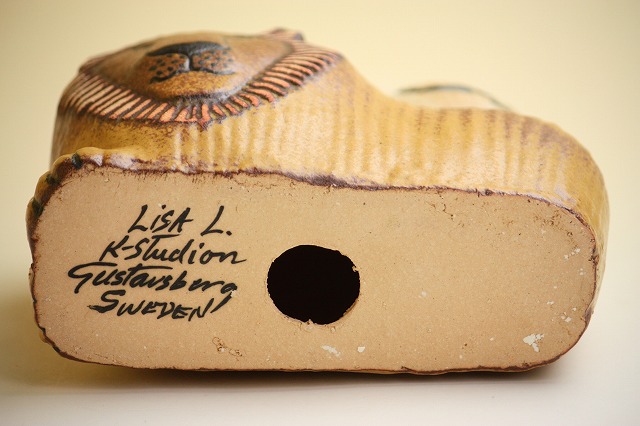 LiSA L.
K-Studion
Gustavsberg
SWEDEN